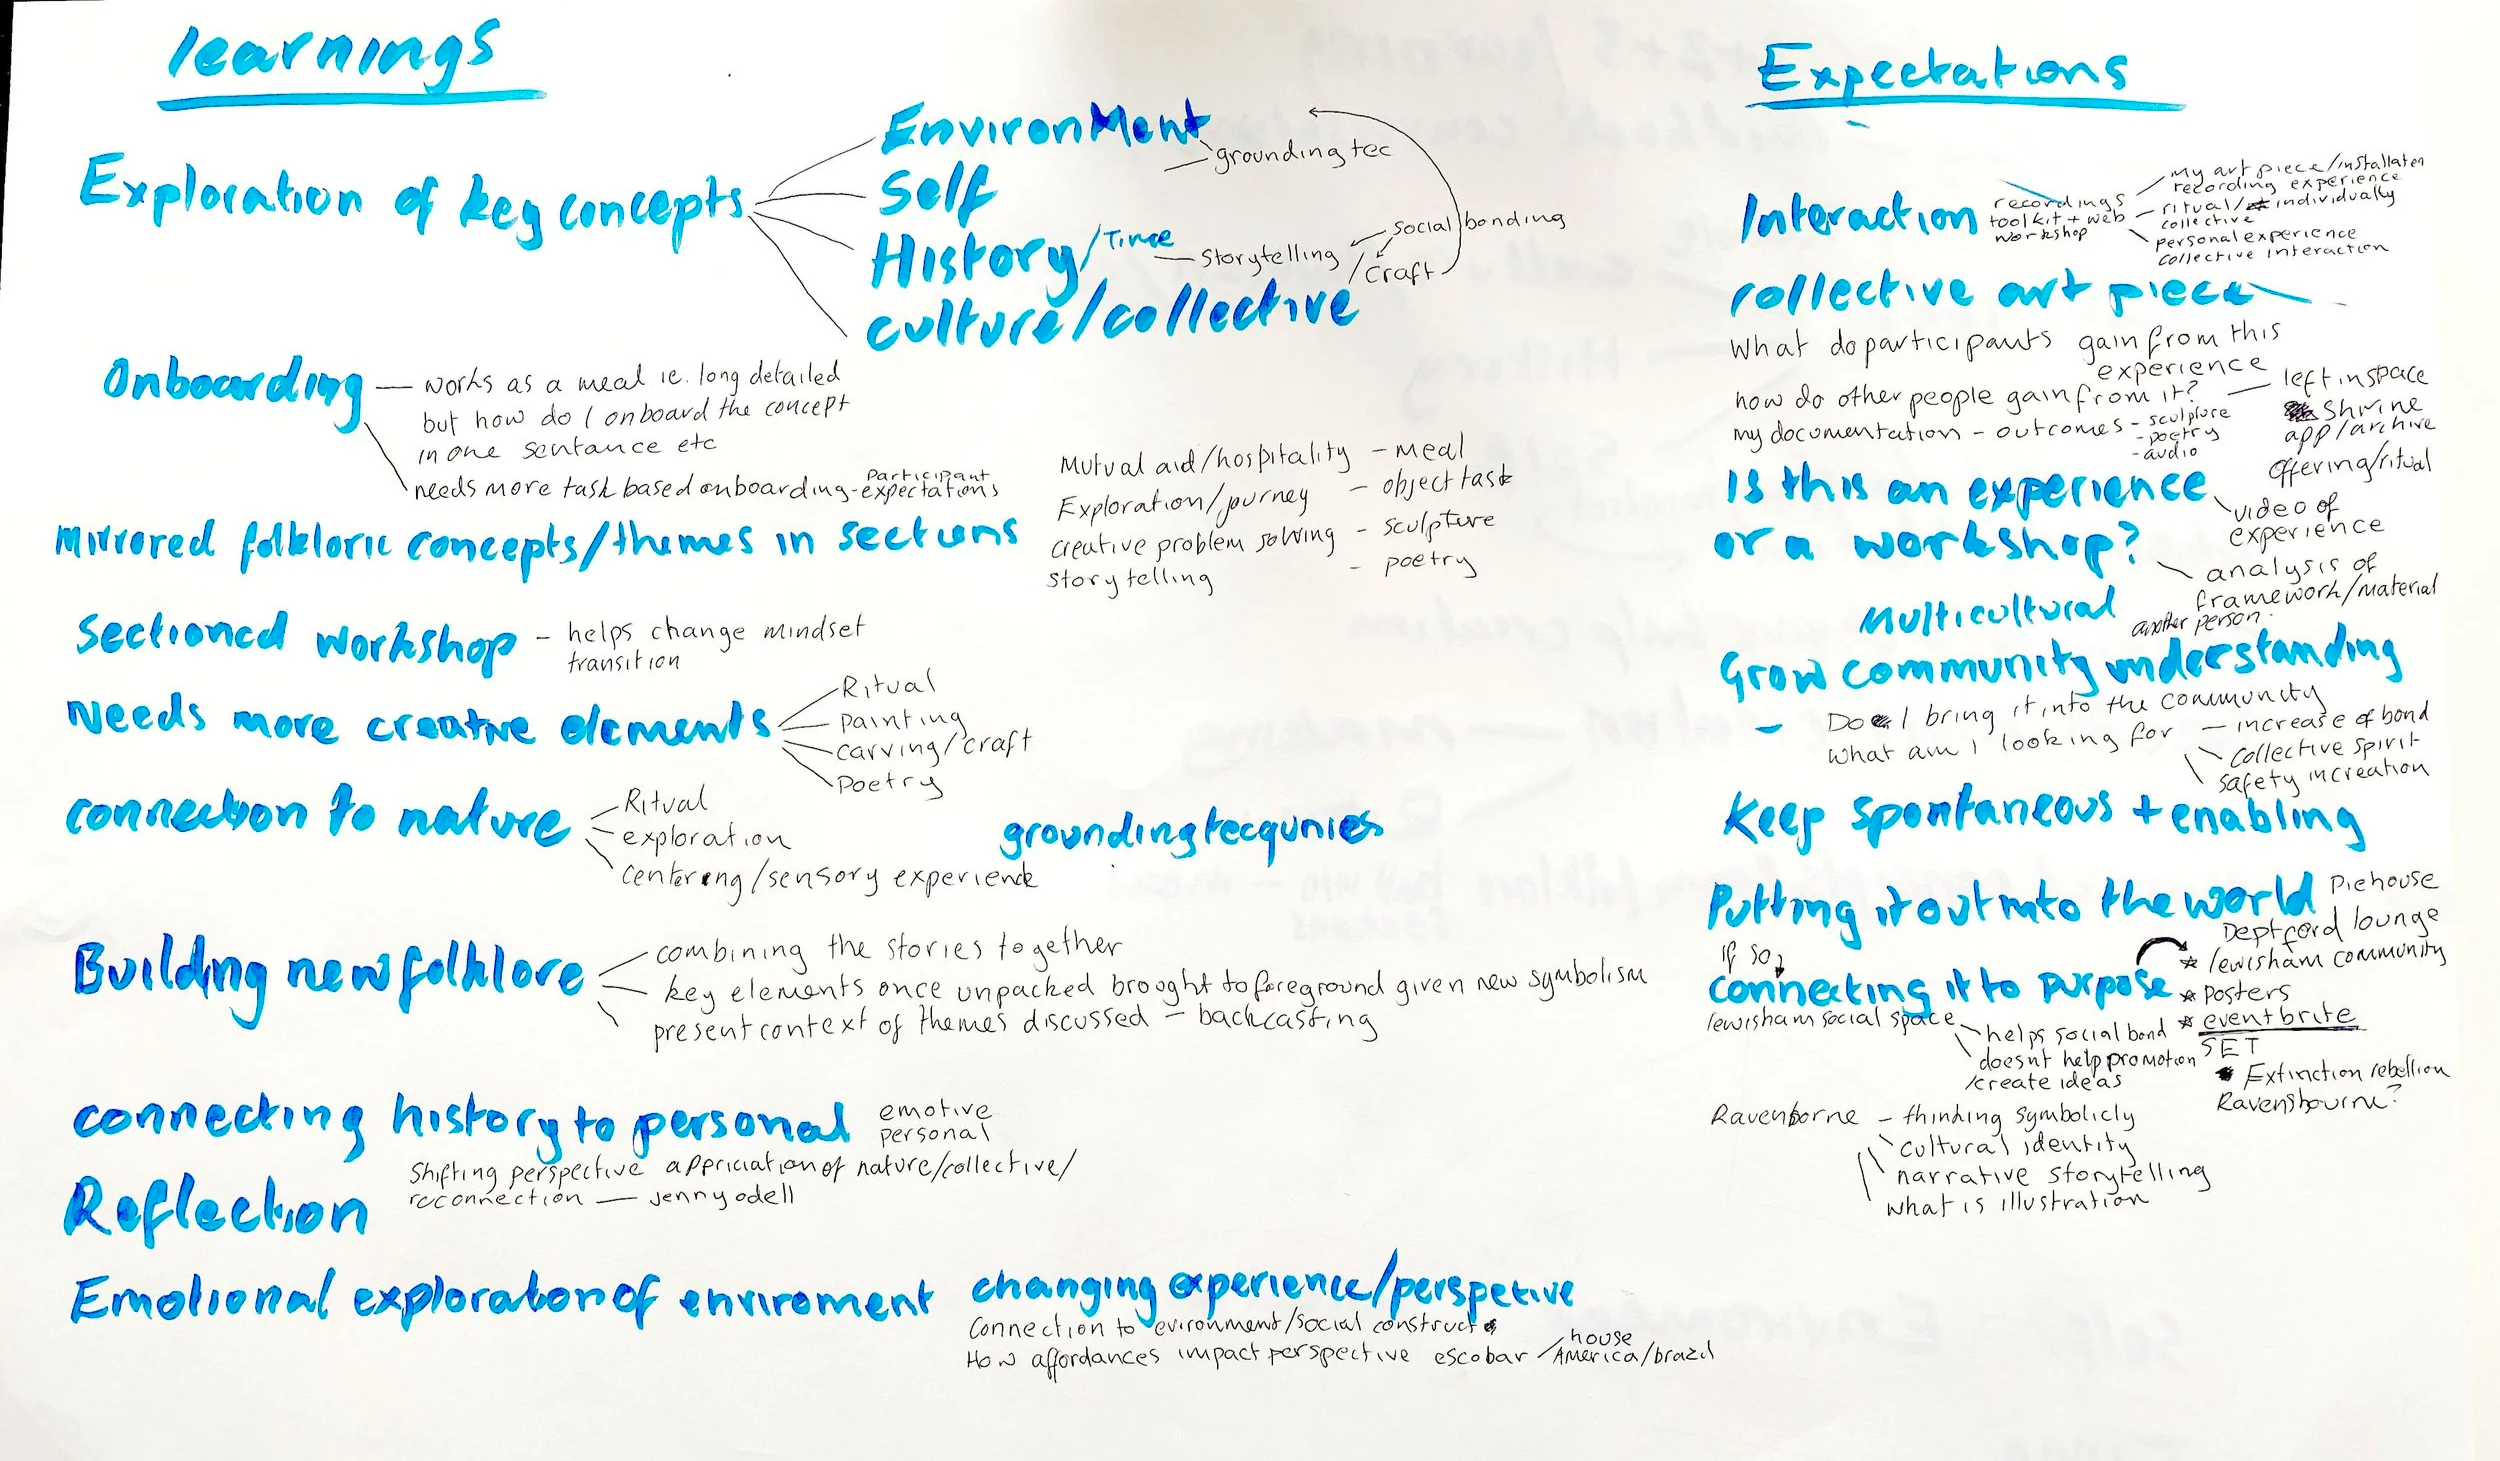 learnings
Exploration of key concepts
Environment
grounding tec
Self
History/Time
Storytelling
/craft
Social bonding
culture/collective
Onboarding
works as a meal ie. long detailed
but how do I onboard the concept
in one sentance etc
needs more task based onboarding - participant expectations
Mirrored folkloric concepts/themes in sections
Mutual aid/hospitality - meal
Exploration/journey - object task
creative problem solving - sculpture
storytelling - poetry
Sectioned workshop - helps change mindset
transition
Needs more creative elements
Ritual
painting
carving/craft
Poetry
connection to nature
Ritual
exploration
centering/sensory experience
grounding tecqunies
Building new folklore
combining the stories together
key elements once unpacked brought to foreground given new symbolism
present context of themes discussed - backcasting
connecting history to personal
emotive
personal
Reflection
Shifting perspective appriciation of nature/collective/
reconnection — jenny odell
Emotional exploration of enviroment
changing experience/perspetive
Connection to evironment/social construct
How affordances impact perspective escobar / house
America/brazil
Expectations
Interaction
recordings
toolkit + web
workshop
My art piece/installaten
recording experience
ritual/ individually
collective
personal experience
collective interaction
collective art piece
What do participants gain from this
experience
how do other people gain from it?
left in space
shrine
app/archive
offering/ritual
my documentation - outcomes - sculpture
- poetry
- audio
Is this an experience
or a workshop?
video of
experience
analysis of
framework/material
another person.
Multicultural
Grow community understanding
- Do I bring it into the community
What am I looking for - increase of bond
collective spirit
safety in creation
Keep spontaneous + enabling
Putting it out into the world
Piehouse
Deptford lounge
lewisham community
If so,
connecting it to purpose
posters
eventbrite
SET
Extinction rebellion
Ravensbourne?
lewisham social space
helps social bond
doesnt help promotion
/create ideas
Ravenborne - thinking symbolicly
cultural identity
narrative storytelling
what is illustration